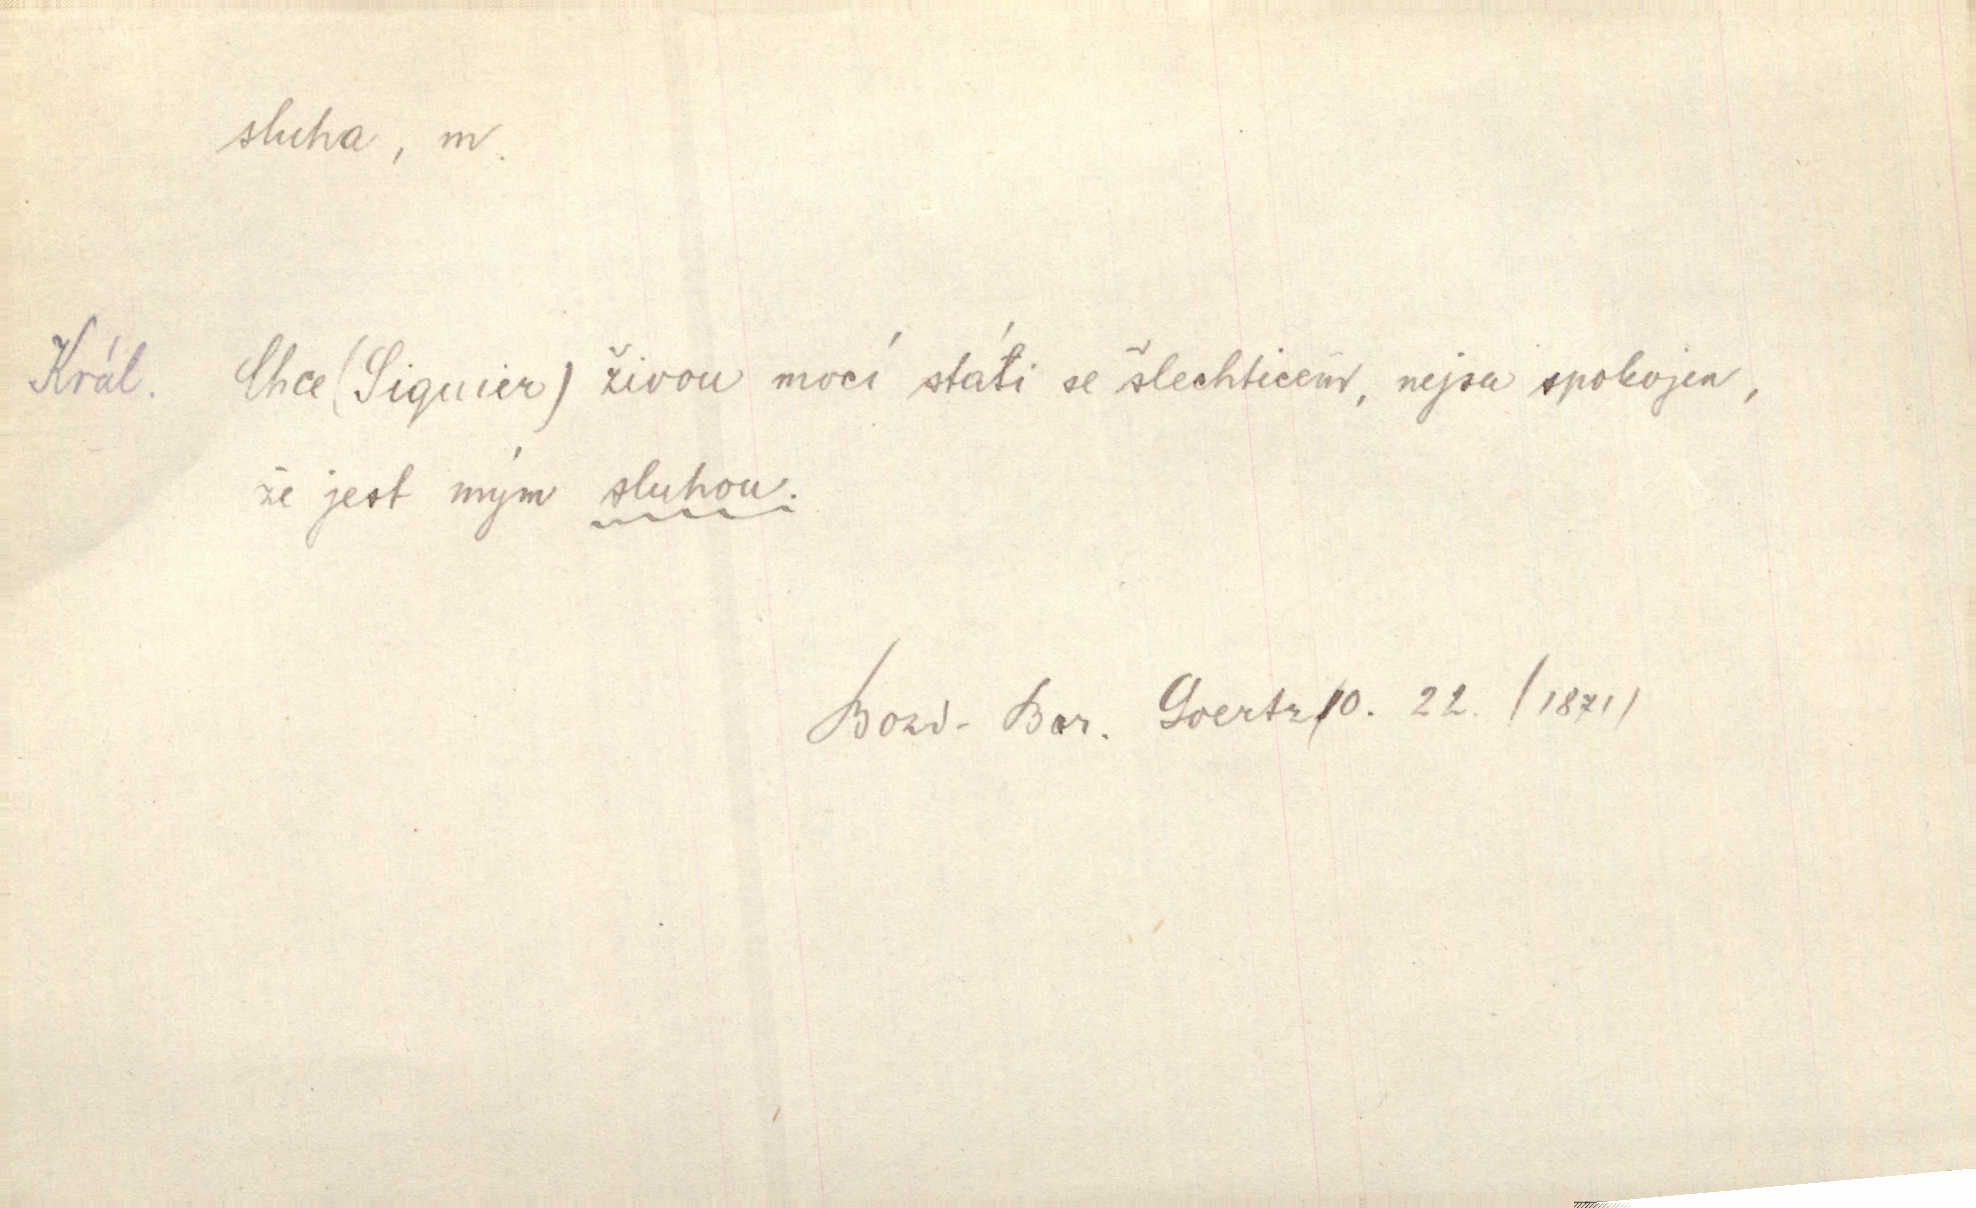 sluha, m.
Král. Chce (Siquier) živou mocí státi se šlechticem, nejsa spokojen,
že jest mým sluhou.
Bozd- Bar. Goertz 10. 22. (1871)